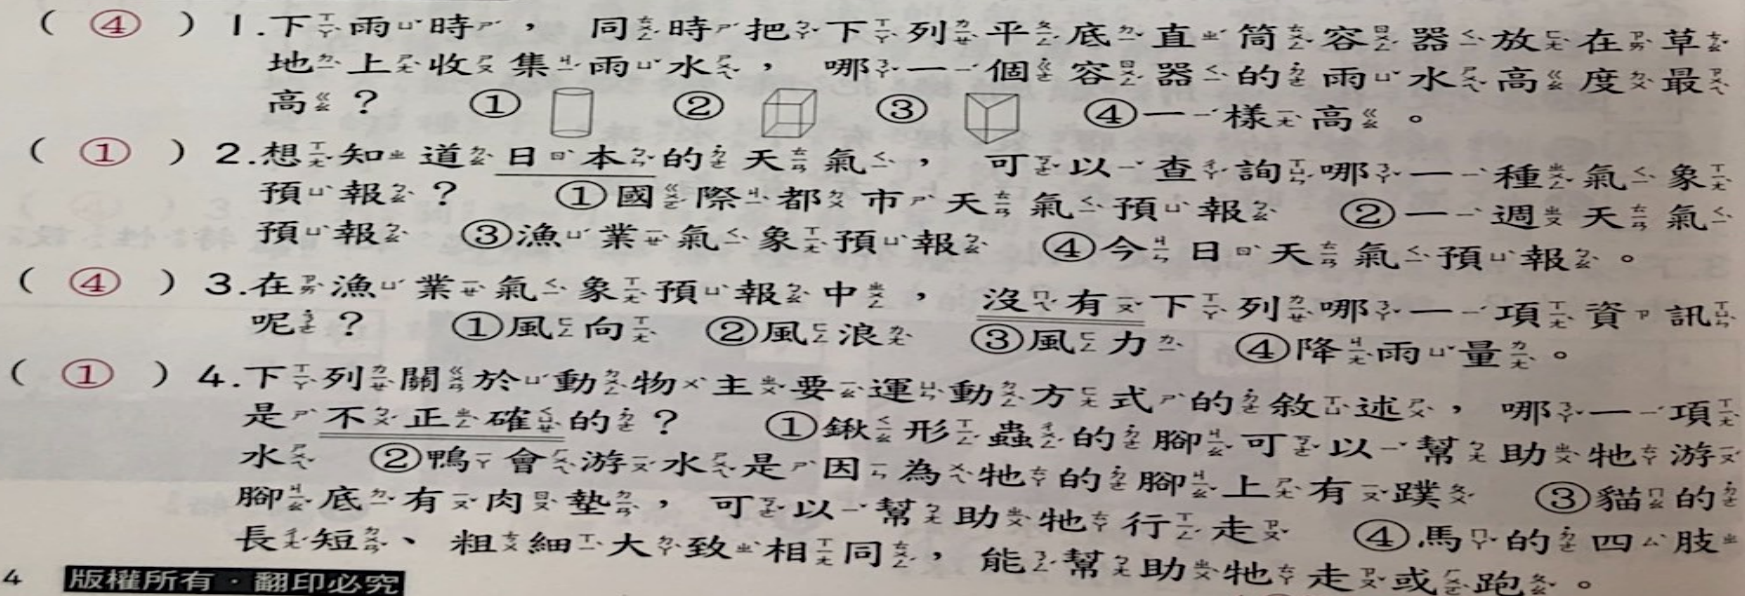 ( ④ ) 1.下雨時，同時把下列平底直筒容器放在草
地上收集雨水，哪一個容器的雨水高度最
高？ ① ② ③ ④一樣高。
( ① ) 2.想知道日本的天氣，可以查詢哪一種氣象
預報？ ①國際都市天氣預報 ②一週天氣
預報 ③漁業氣象預報 ④今日天氣預報。
( ④ ) 3.在漁業氣象預報中，沒有下列哪一項資訊
呢？ ①風向 ②風浪 ③風力 ④降雨量。
( ① ) 4.下列關於動物主要運動方式的敘述，哪一項
是不正確的？ ①鍬形蟲的腳可以幫助牠游
水 ②鴨會游水是因為牠的腳上有蹼 ③貓的
腳底有肉墊，可以幫助牠行走 ④馬的四肢
長短、粗細大致相同，能幫助牠走或跑。
4 版權所有·翻印必究